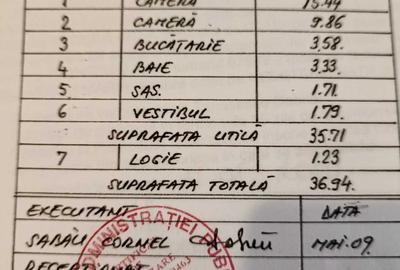 1 CAMERĂ 15.44
2 CAMERĂ 9.86
3 BUCĂTARIE 3.58.
4 BAIE 3.33.
5 SAS. 1.71
6 VESTIBUL 1.79.
SUPRAFATA UTILĂ 35.71
7 LOGIE 1.23
SUPRAFATA TOTALĂ 36.94.
EXECUTANT DATA
SABĂU CORNEL MAI.09.
ADMINISTRAȚIEI PUB